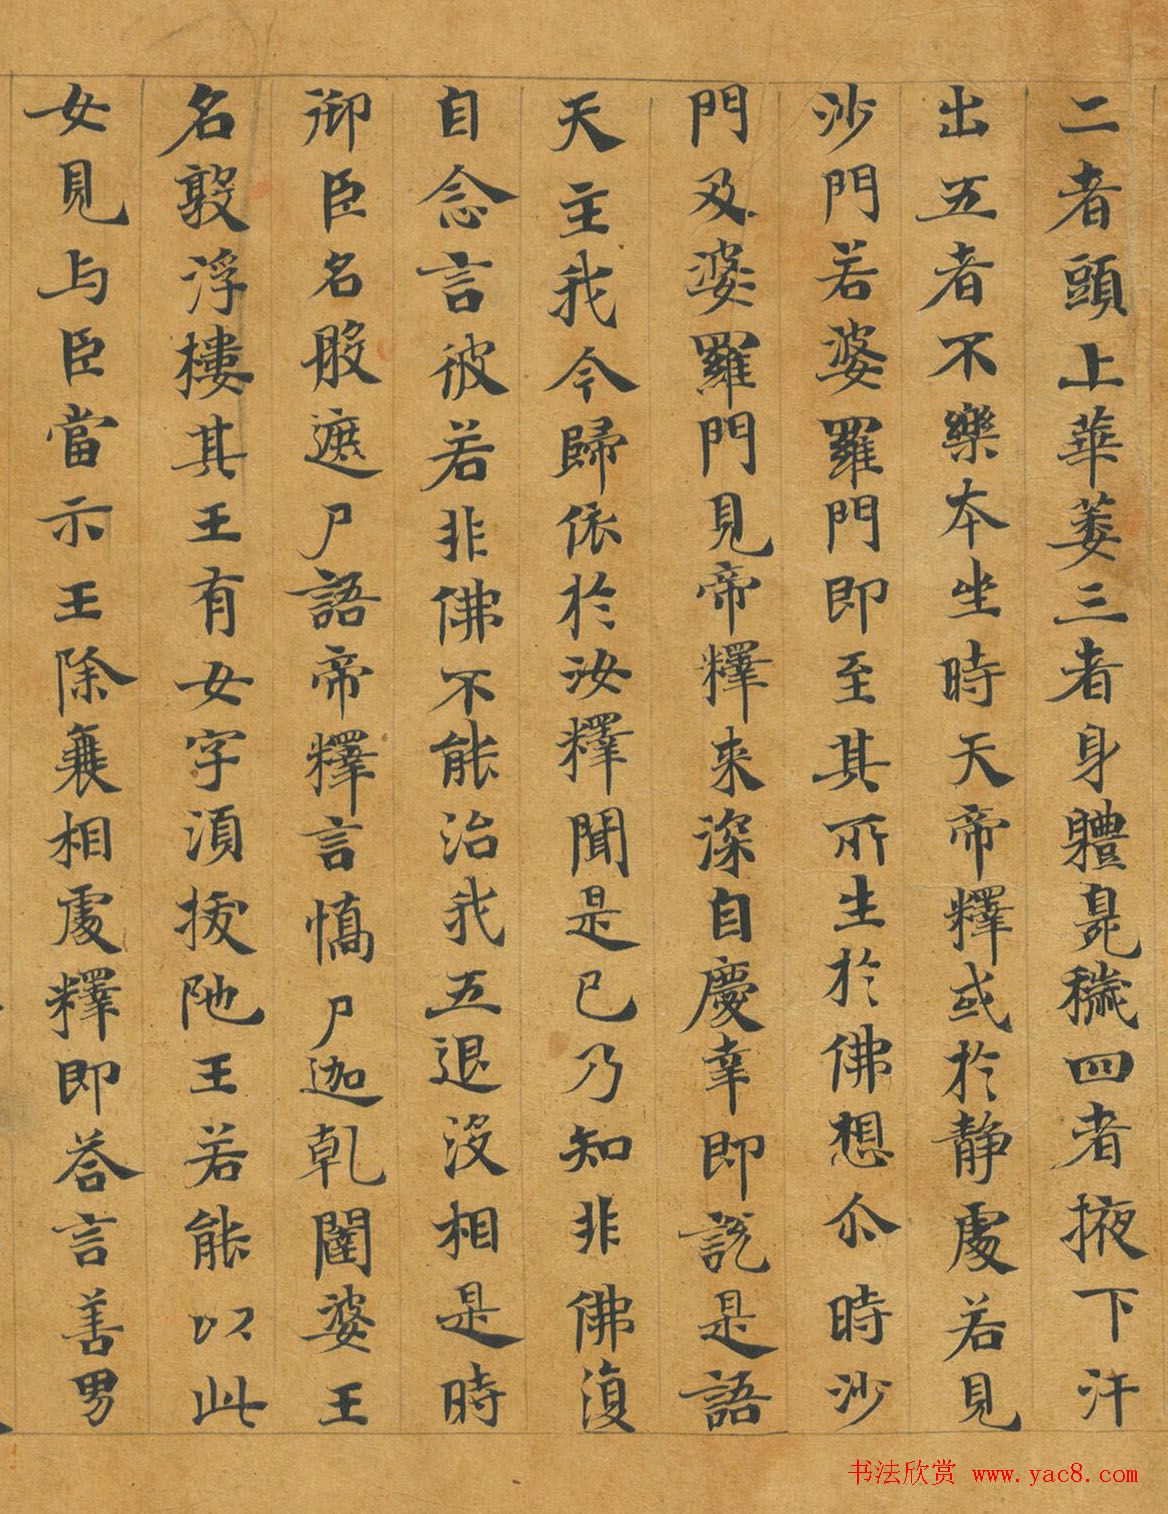 二者頭上華萎三者身體臭穢四者掖下汗
出五者不樂本坐時天帝釋或於静處若見
沙門若婆羅門即至其所生於佛想尒時沙
門及婆羅門見帝釋来深自慶幸即說是語
天主我今歸依於汝釋聞是已乃知非佛復
自念言彼若非佛不能治我五退沒相是時
御臣名般遮尸語帝釋言憍尸迦乹闥婆王
名敦浮樓其王有女字湏拔陁王若能以此
女見与臣當示王除襄相處釋即荅言善男
书法欣赏 www.yac8.com